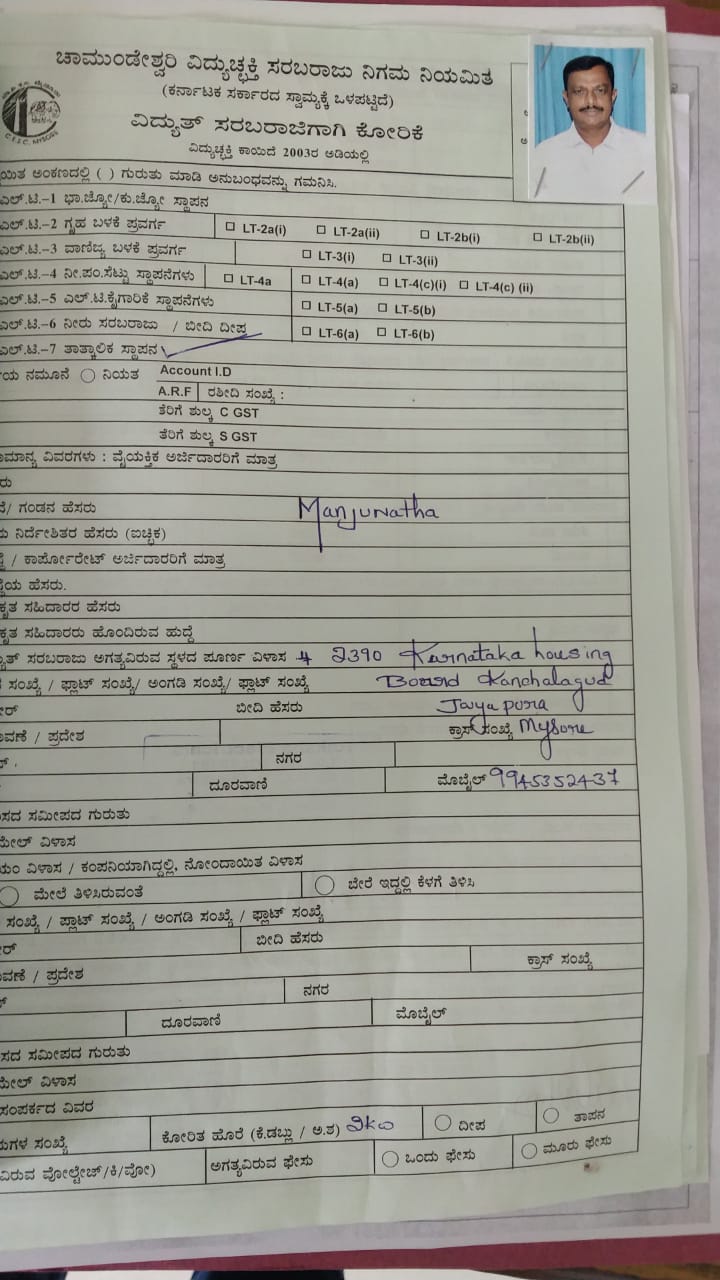 ಚಾಮುಂಡೇಶ್ವರಿ ವಿದ್ಯುಚ್ಛಕ್ತಿ ಸರಬರಾಜು ನಿಗಮ ನಿಯಮಿತ
(ಕರ್ನಾಟಕ ಸರ್ಕಾರದ ಸ್ವಾಮ್ಯಕ್ಕೆ ಒಳಪಟ್ಟಿದೆ)
ವಿದ್ಯುತ್ ಸರಬರಾಜಿಗಾಗಿ ಕೋರಿಕೆ
ವಿದ್ಯುಚ್ಛಕ್ತಿ ಕಾಯಿದೆ 2003ರ ಅಡಿಯಲ್ಲಿ
ಅಂಕಣದಲ್ಲಿ ( ) ಗುರುತು ಮಾಡಿ ಅನುಬಂಧವನ್ನು ಗಮನಿಸಿ.
ಎಲ್.ಟಿ.-1 ಭಾ.ಜ್ಯೋ/ಕು.ಜ್ಯೋ ಸ್ಥಾಪನ
ಎಲ್.ಟಿ.-2 ಗೃಹ ಬಳಕೆ ಪ್ರವರ್ಗ LT-2a(i) LT-2a(ii) LT-2b(i) LT-2b(ii)
ಎಲ್.ಟಿ.-3 ವಾಣಿಜ್ಯ ಬಳಕೆ ಪ್ರವರ್ಗ LT-3(i) LT-3(ii)
ಎಲ್.ಟಿ.-4 ನೀ.ಪಂ.ಸೆಟ್ಟು ಸ್ಥಾಪನೆಗಳು LT-4a LT-4(a) LT-4(c)(i) LT-4(c) (ii)
ಎಲ್.ಟಿ.-5 ಎಲ್.ಟಿ.ಕೈಗಾರಿಕೆ ಸ್ಥಾಪನೆಗಳು LT-5(a) LT-5(b)
ಎಲ್.ಟಿ.-6 ನೀರು ಸರಬರಾಜು / ಬೀದಿ ದೀಪ LT-6(a) LT-6(b)
ಎಲ್.ಟಿ.-7 ತಾತ್ಕಾಲಿಕ ಸ್ಥಾಪನ
ನಮೂನೆ ನಿಯತ Account I.D
A.R.F ರಶೀದಿ ಸಂಖ್ಯೆ :
ತೆರಿಗೆ ಶುಲ್ಕ C GST
ತೆರಿಗೆ ಶುಲ್ಕ S GST
ವಿವರಗಳು : ವೈಯಕ್ತಿಕ ಅರ್ಜಿದಾರರಿಗೆ ಮಾತ್ರ
/ ಗಂಡನ ಹೆಸರು Manjunatha
ನಿರ್ದೇಶಿತರ ಹೆಸರು (ಐಚ್ಛಿಕ)
/ ಕಾರ್ಪೋರೇಟ್ ಅರ್ಜಿದಾರರಿಗೆ ಮಾತ್ರ
ಹೆಸರು.
ಸಹಿದಾರರ ಹೆಸರು
ಸಹಿದಾರರು ಹೊಂದಿರುವ ಹುದ್ದೆ
ಸರಬರಾಜು ಅಗತ್ಯವಿರುವ ಸ್ಥಳದ ಪೂರ್ಣ ವಿಳಾಸ 2390 Karnataka housing
ಸಂಖ್ಯೆ / ಫ್ಲಾಟ್ ಸಂಖ್ಯೆ/ ಅಂಗಡಿ ಸಂಖ್ಯೆ/ ಫ್ಲಾಟ್ ಸಂಖ್ಯೆ Board
ಬೀದಿ ಹೆಸರು Jayapura
/ ಪ್ರದೇಶ ಕ್ರಾಸ್ ಸಂಖ್ಯೆ Mysore
ನಗರ
ದೂರವಾಣಿ ಮೊಬೈಲ್ 9945352437
ಸಮೀಪದ ಗುರುತು
ವಿಳಾಸ
ವಿಳಾಸ / ಕಂಪನಿಯಾಗಿದ್ದಲ್ಲಿ, ನೋಂದಾಯಿತ ವಿಳಾಸ
ಮೇಲೆ ತಿಳಿಸಿರುವಂತೆ ಬೇರೆ ಇದ್ದಲ್ಲಿ ಕೆಳಗೆ ತಿಳಿಸಿ
ಸಂಖ್ಯೆ / ಪ್ಲಾಟ್ ಸಂಖ್ಯೆ / ಅಂಗಡಿ ಸಂಖ್ಯೆ / ಫ್ಲಾಟ್ ಸಂಖ್ಯೆ
ಬೀದಿ ಹೆಸರು
/ ಪ್ರದೇಶ ಕ್ರಾಸ್ ಸಂಖ್ಯೆ
ನಗರ
ದೂರವಾಣಿ ಮೊಬೈಲ್
ಸಮೀಪದ ಗುರುತು
ವಿಳಾಸ
ಸಂಪರ್ಕದ ವಿವರ
ಸಂಖ್ಯೆ ಕೋರಿತ ಹೊರೆ (ಕೆ.ಡಬ್ಲು / ಅ.ಶ) ದೀಪ ತಾಪನ
ವೋಲ್ಟೇಜ್/ಕಿ/ವೋ) ಅಗತ್ಯವಿರುವ ಫೇಸು ಒಂದು ಫೇಸು ಮೂರು ಫೇಸು